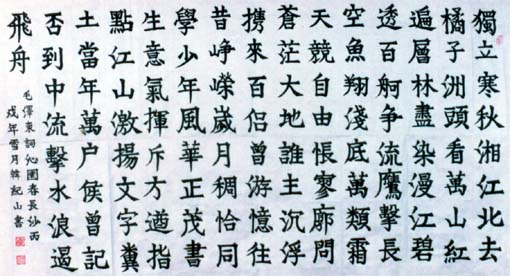 獨立寒秋湘江北去
橘子洲頭看萬山紅
遍層林盡染漫江碧
透百舸爭流鷹擊長
空魚翔淺底萬類霜
天競自由悵寥廓問
蒼茫大地誰主沉浮
携來百侣曾游憶往
昔崢嶸歲月稠恰同
學少年風華正茂書
生意氣揮斥方遒指
點江山激揚文字糞
土當年萬户侯曾記
否到中流擊水浪遏
飛舟
毛澤東詞沁園春長沙丙
戌年雪月韓紀山書